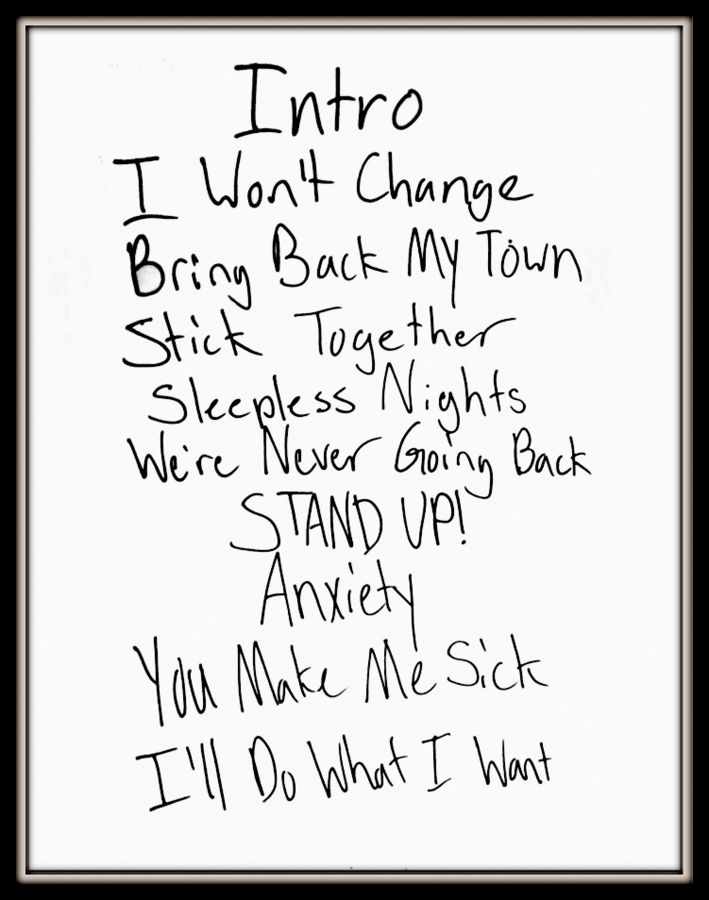 Intro
I Won't Change
Bring Back My Town
Stick Together
Sleepless Nights
We're Never Going Back
STAND UP!
Anxiety
You Make Me Sick
I'll Do What I Want